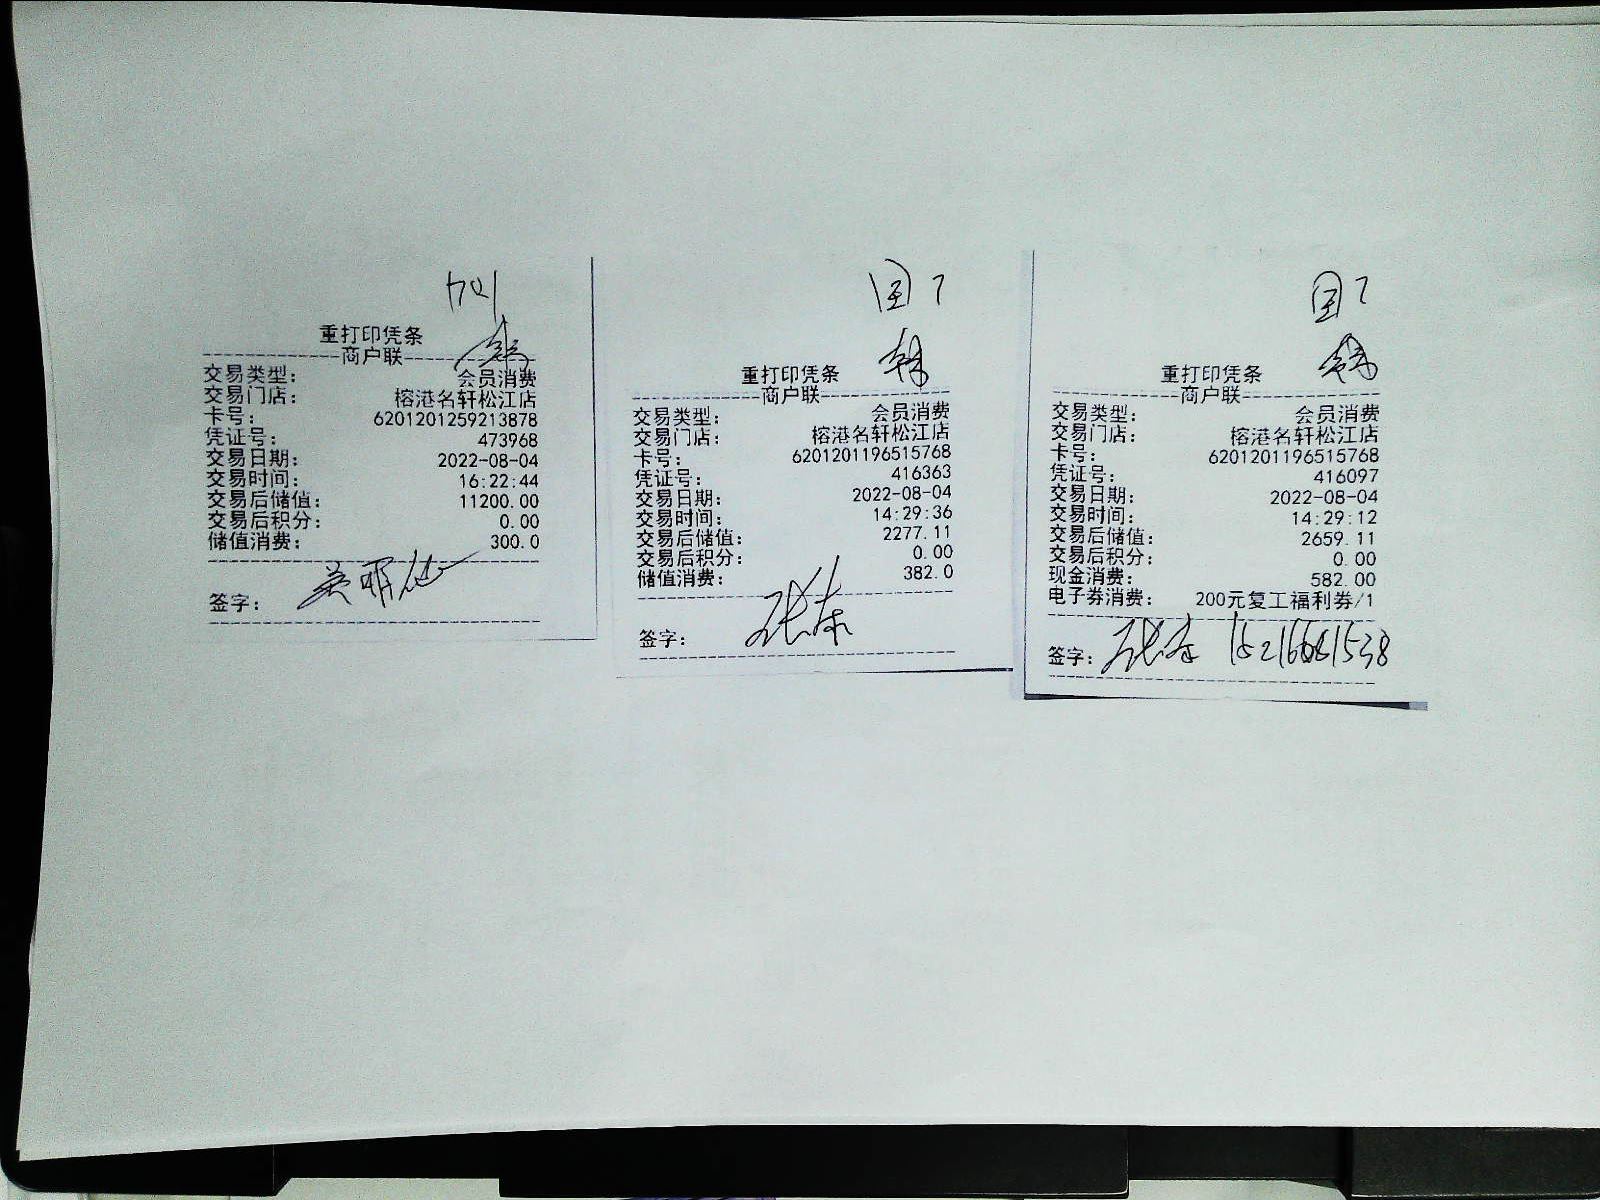 重打印凭条
商户联
交易类型： 会员消费
交易门店： 榕港名轩松江店
卡号： 6201201259213878
凭证号： 473968
交易日期： 2022-08-04
交易时间： 16:22:44
交易后储值： 11200.00
交易后积分： 0.00
储值消费： 300.0
签字：
国7
重打印凭条
商户联
交易类型： 会员消费
交易门店： 榕港名轩松江店
卡号： 6201201196515768
凭证号： 416363
交易日期： 2022-08-04
交易时间： 14:29:36
交易后储值： 2277.11
交易后积分： 0.00
储值消费： 382.0
签字： 张东
国7
重打印凭条
商户联
交易类型： 会员消费
交易门店： 榕港名轩松江店
卡号： 6201201196515768
凭证号： 416097
交易日期： 2022-08-04
交易时间： 14:29:12
交易后储值： 2659.11
交易后积分： 0.00
现金消费： 582.00
电子券消费： 200元复工福利券/1
签字： 张东